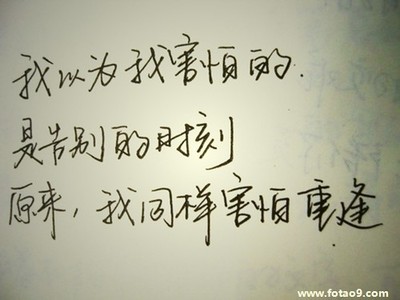 我以为我害怕的.
是告别的时刻
原来，我同样害怕重逢
www.fotao9.com